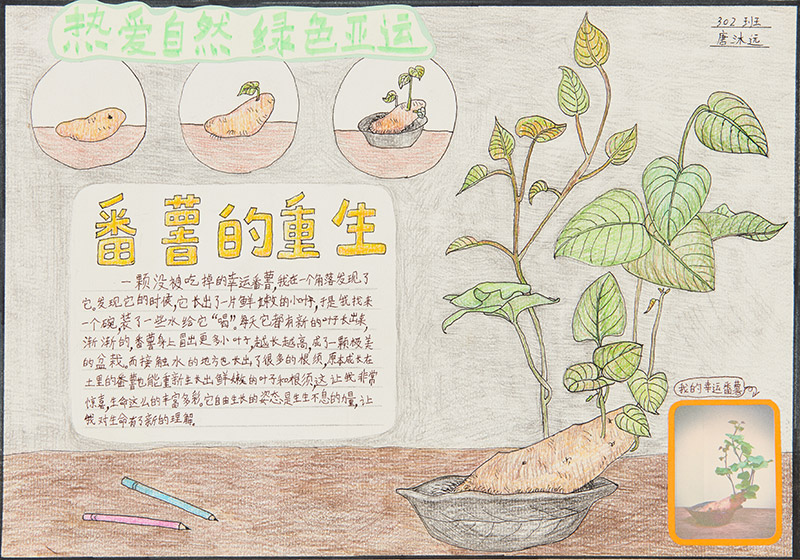 热爱自然 绿色亚运
302班
唐沐远
番薯的重生
一颗没被吃掉的幸运番薯,我在一个角落发现了
它。发现它的时候,它长出了一片鲜嫩的小叶,于是我找来
一个碗,装了一些水给它“喝”。每天它都有新的叶子长出来,
渐渐的,番薯身上冒出更多小叶子,越长越高,成了一颗极美
的盆栽。而接触水的地方也长出了很多的根须,原本成长在
土里的番薯也能重新生长出鲜嫩的叶子和根须,这让我非常
惊喜,生命这么的丰富多彩。它自由生长的姿态是生生不息的力量,让
我对生命有了新的理解。
我的幸运番薯